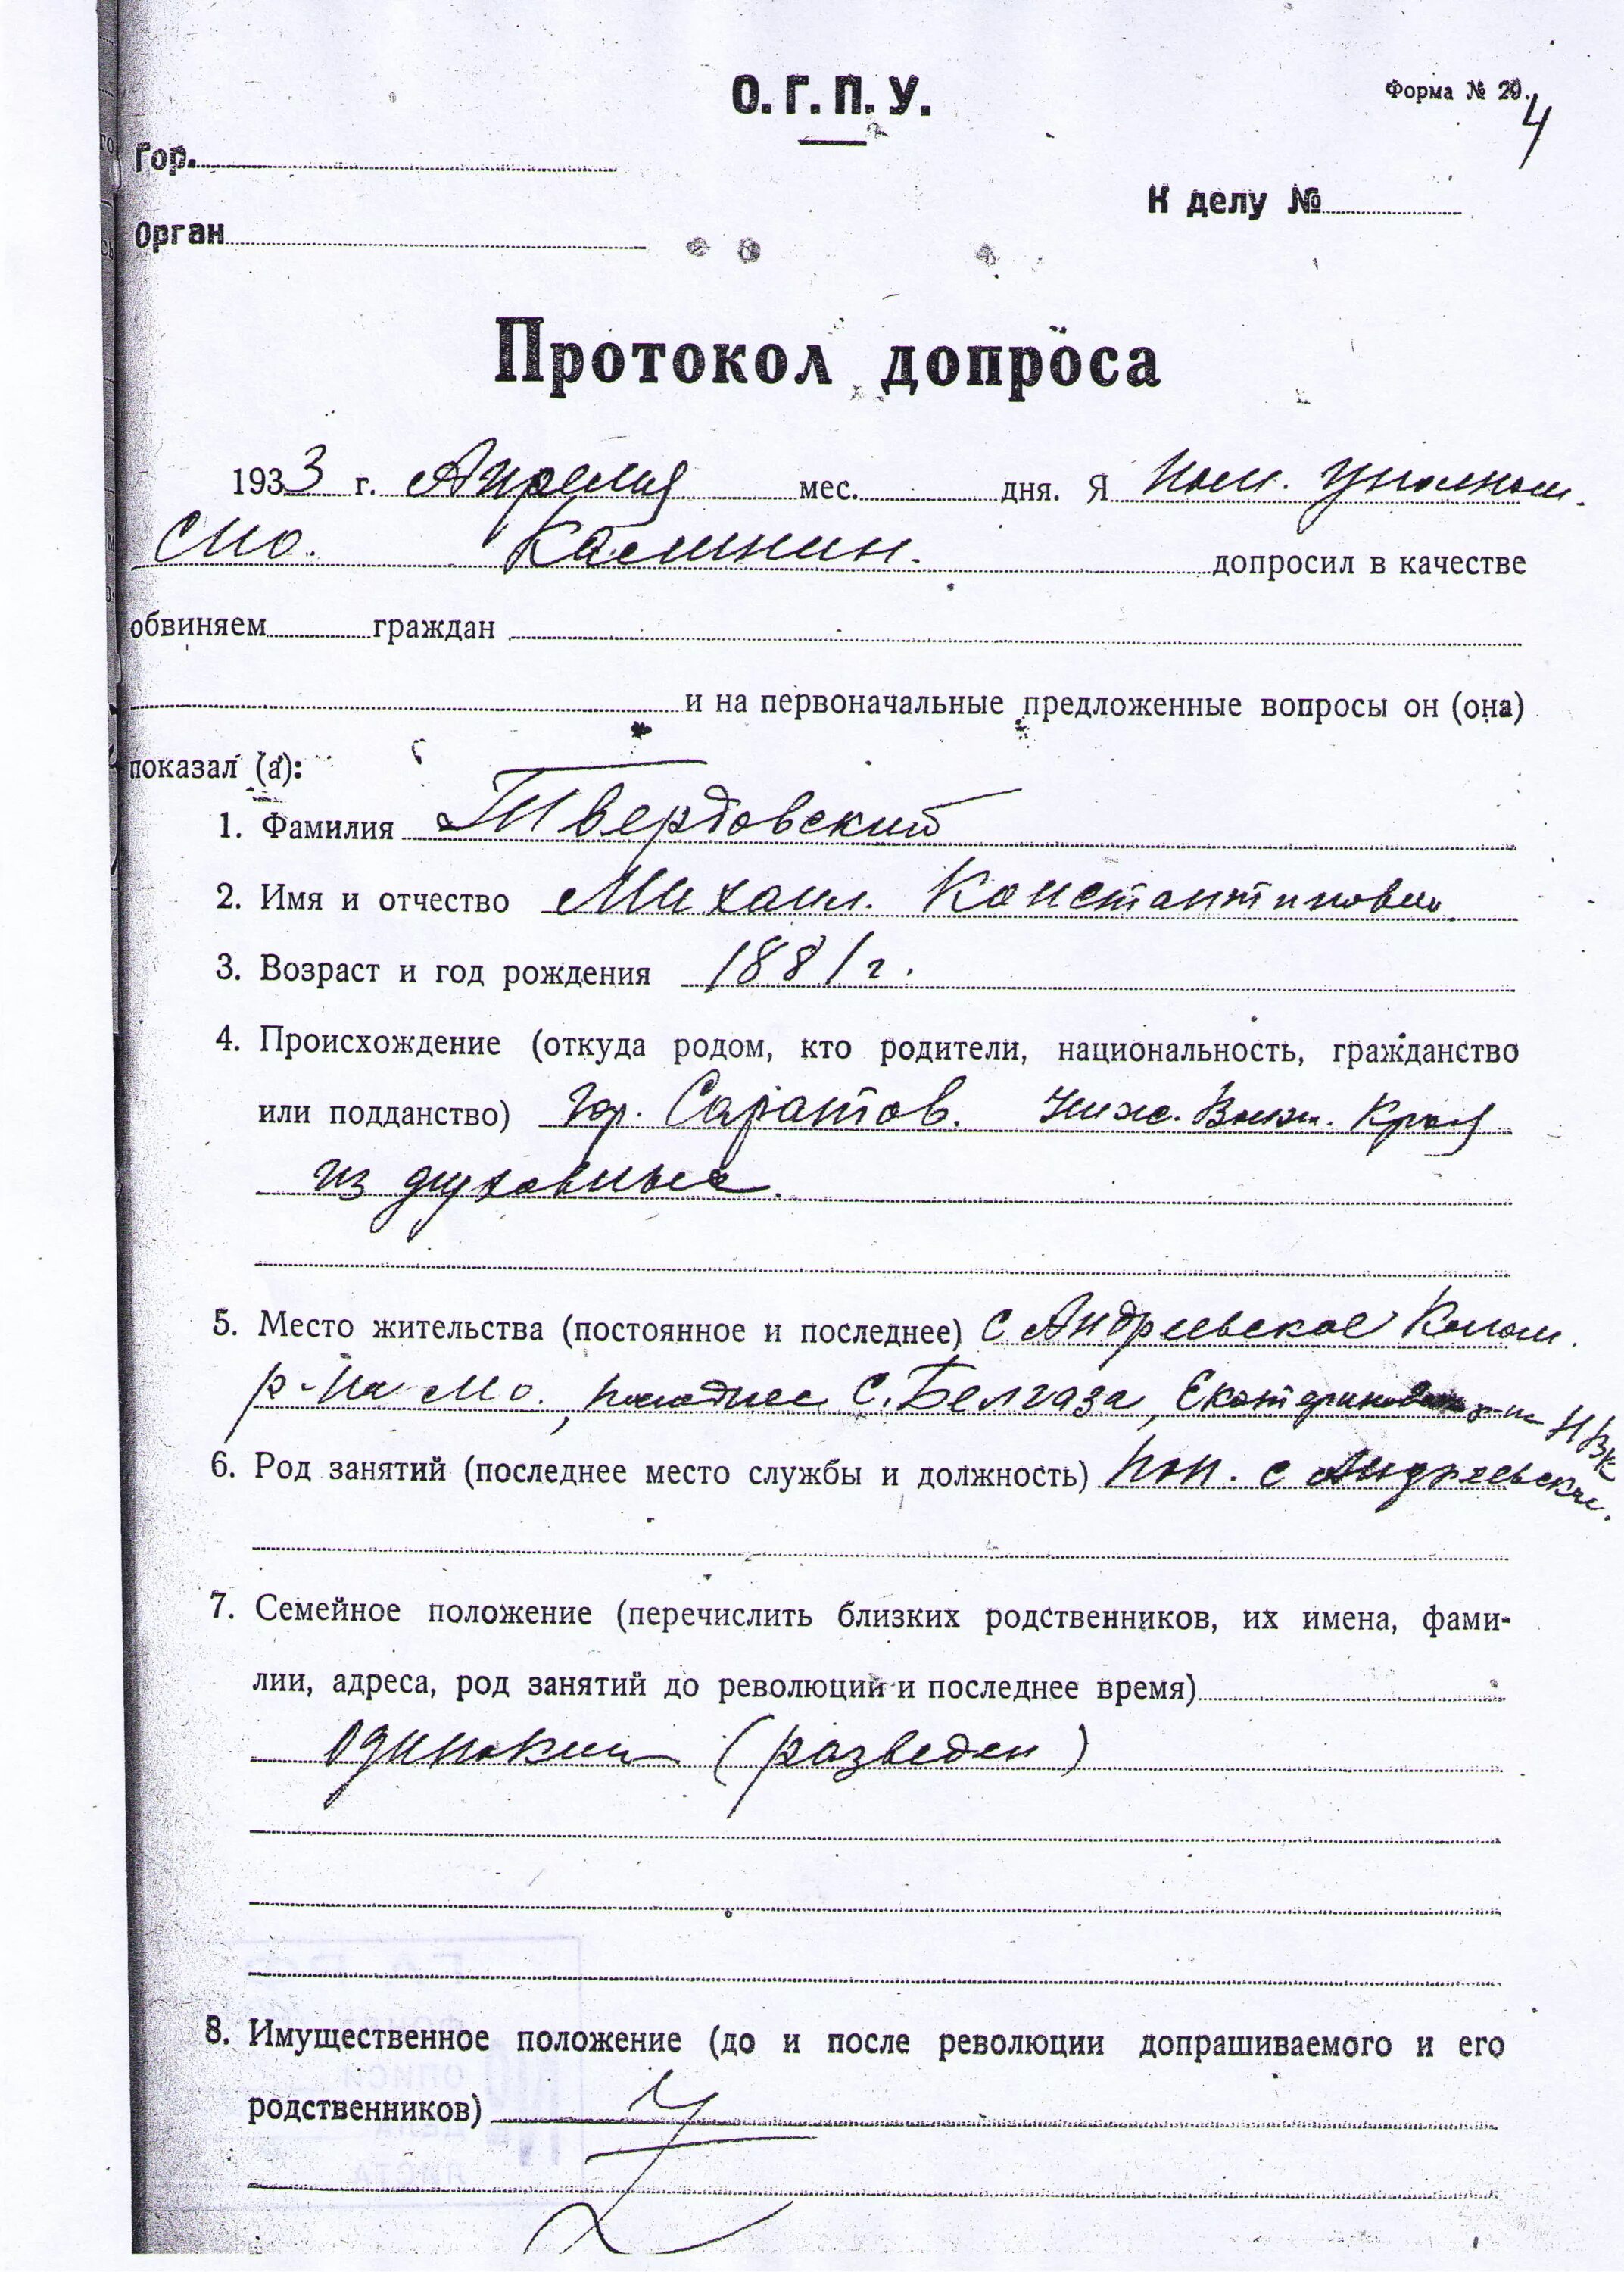 О.Г.П.У.
Форма № 20.
4
Гор.
К делу №
Орган
Протокол допроса
1933 г. Апреля мес. дня. Я пом. уполном.
СПО. Калинин. допросил в качестве
обвиняем граждан
и на первоначальные предложенные вопросы он (она)
показал (а):
1. Фамилия Твердовский
2. Имя и отчество Михаил Константинович
3. Возраст и год рождения 1881 г.
4. Происхождение (откуда родом, кто родители, национальность, гражданство
или подданство) гор. Саратов. Ниж. Волж. Край
из духовных.
5. Место жительства (постоянное и последнее) с Андреевское Колом.
р-на МО., последнее с. Белгаза, НВК
6. Род занятий (последнее место службы и должность) поп. с Андреевское.
7. Семейное положение (перечислить близких родственников, их имена, фами-
лии, адреса, род занятий до революции и последнее время)
Одинокий (разведен)
8. Имущественное положение (до и после революции допрашиваемого и его
родственников)